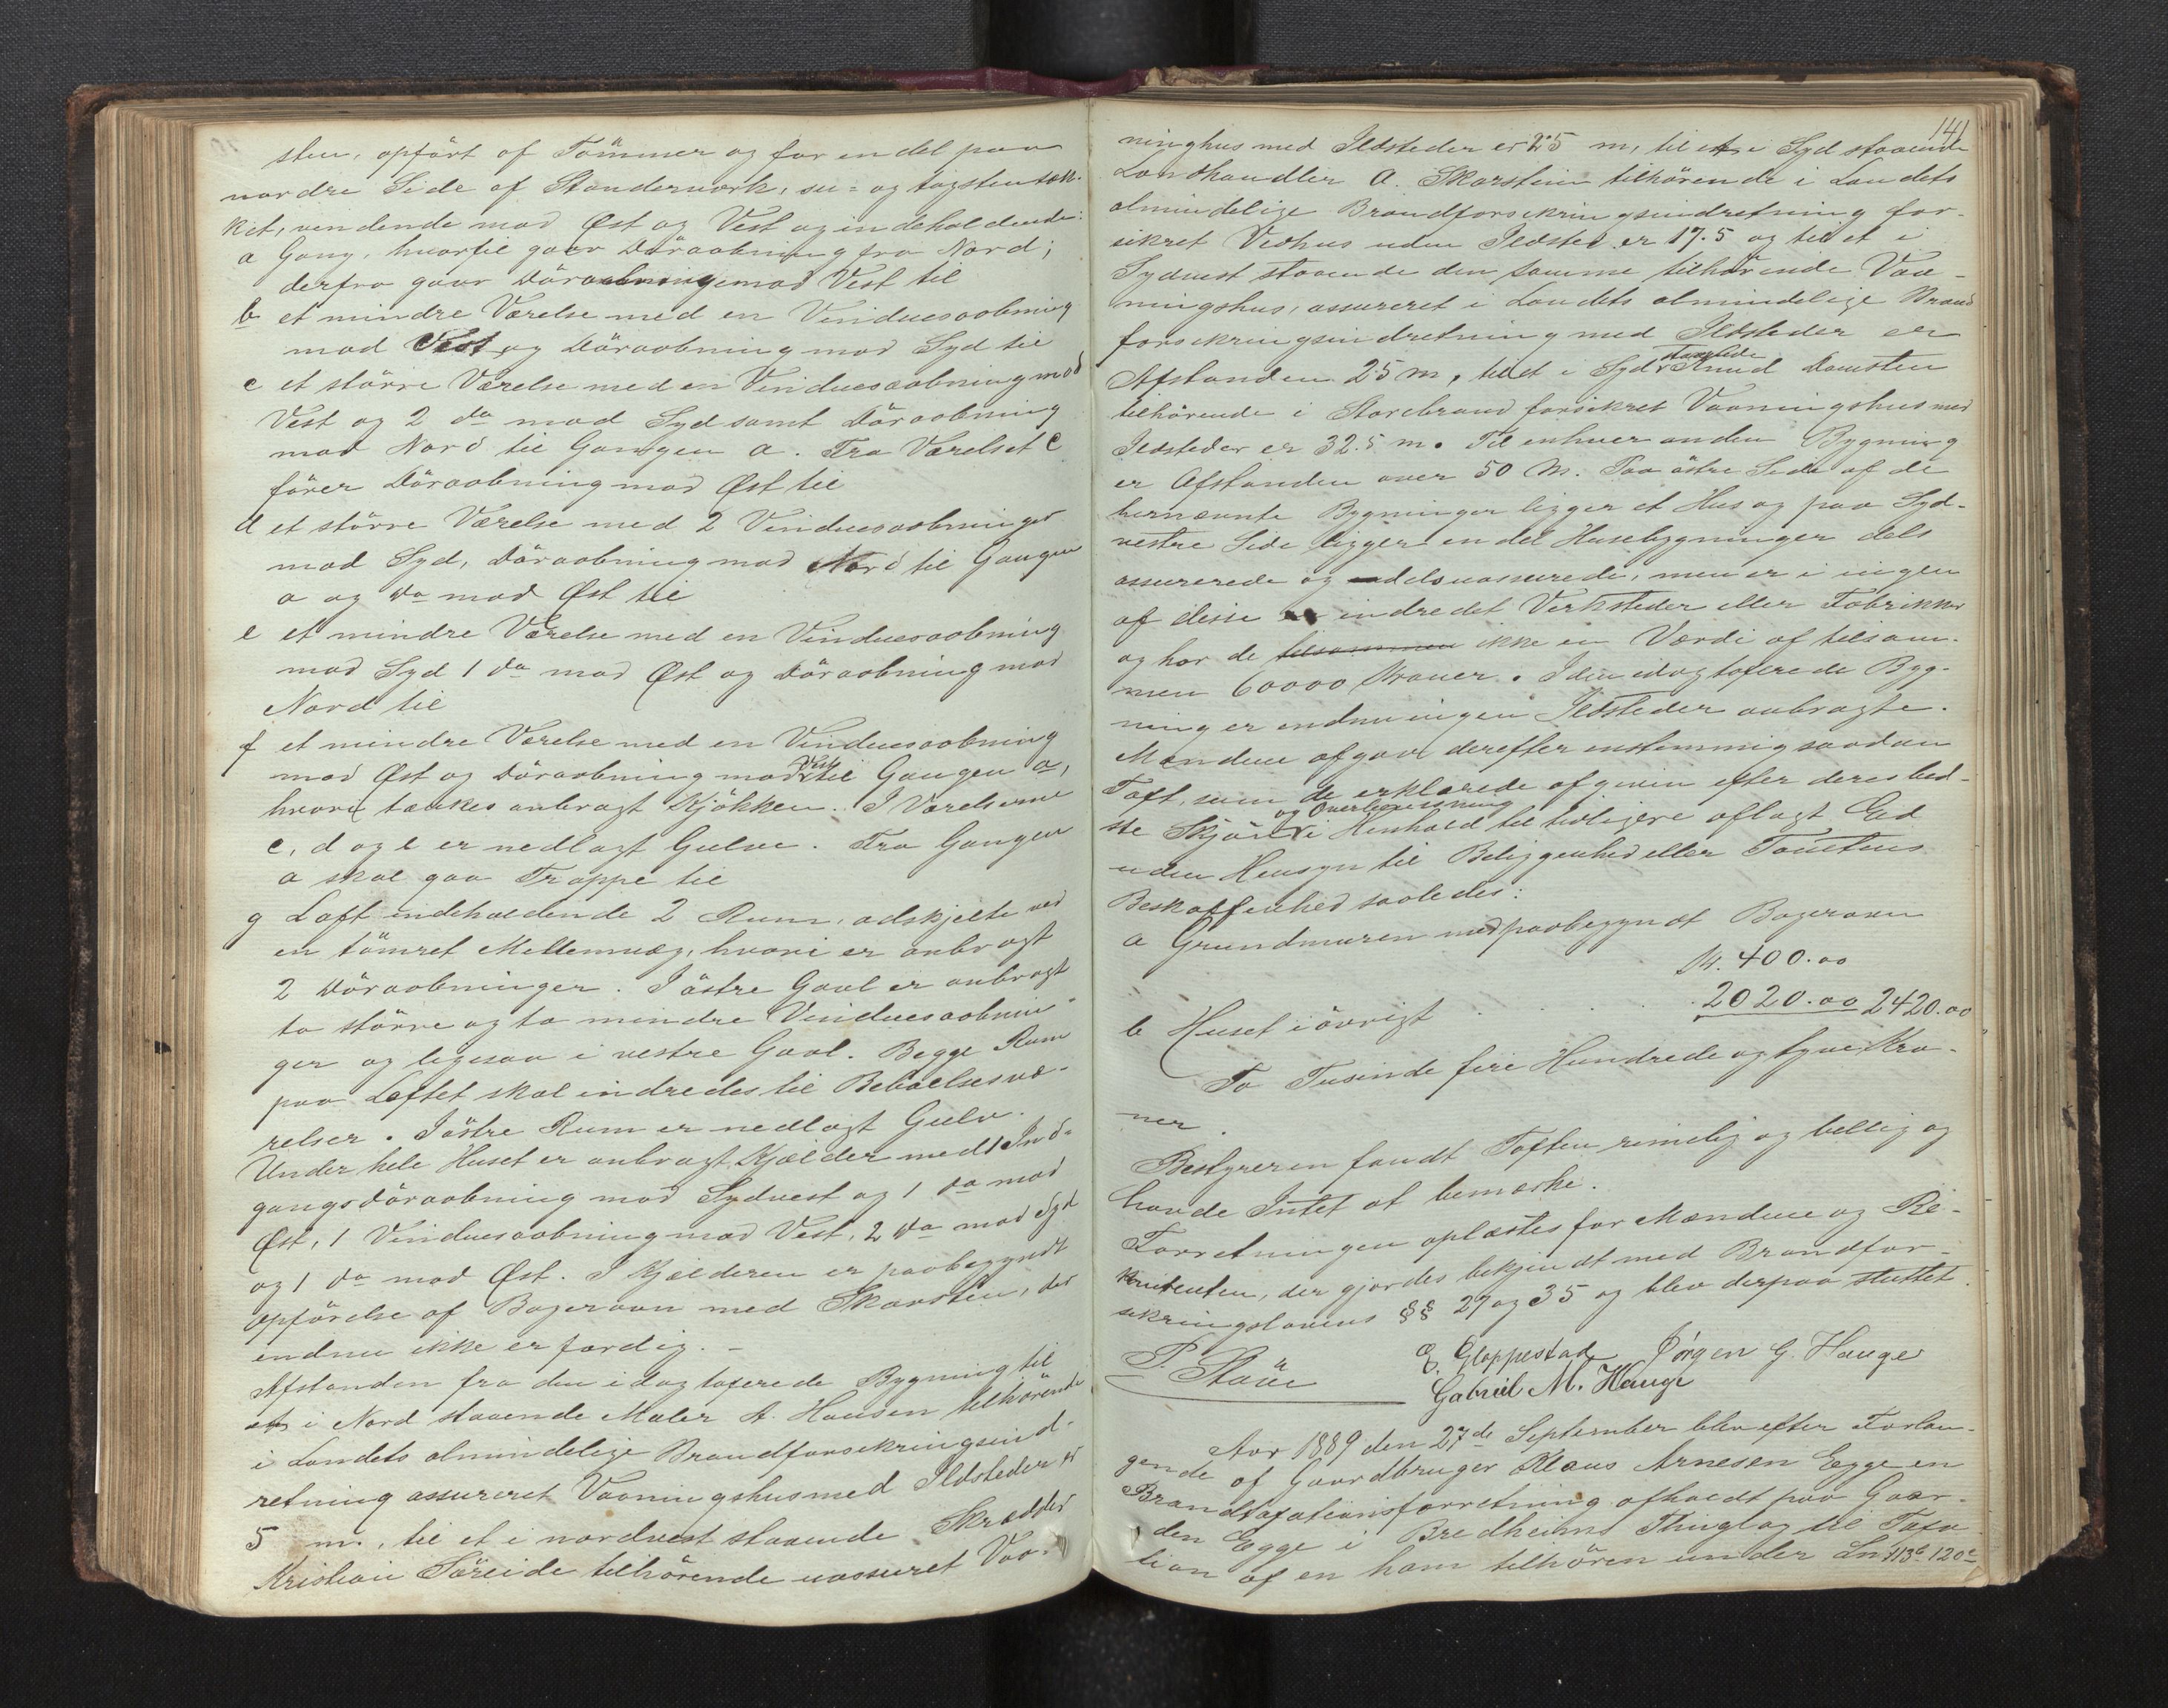 sten, opført af Tømmer og for en del paa
nordre Side af Standerværk, su- og tagstentæk-
ket, vendende mod Øst og Vest og indeholdende:
a Gang, hvortil gaar Døraabning fra Nord;
derfra gaar Døraabning mod Vest til
b et mindre Værelse med en Vinduesaabning
mod Vest og Døraabning mod Syd til
c et större Værelse med en Vinduesaabning mod
Vest og 2 do mod Syd samt Døraabning
mod Nord til Gangen a. Fra Værelset c
förer Döraabning mod Øst til
d et större Værelse med 2 Vinduesaabninger
mod Syd, Döraabning mod Nord til Gangen
a og do mod Øst til
e et mindre Værelse med en Vinduesaabning
mod Syd 1 do mod Øst og Döraabning mod
Nord til
f et mindre Værelse med en Vinduesaabning
mod Øst og Döraabning mod Vest til Gangen a,
hvori tænkes anbragt Kjökken. I Værelserne
c, d og e er nedlagt Gulve. Fra Gangen
a skal gaa Trappe til
g Loft indeholdende 2 Rum, adskjelte ved
en tömret Mellemvæg, hvori er anbragt
2 Döraabninger. I östre Gavl er anbragt
to större og to mindre Vinduesaabnin-
ger og ligesaa i vestre Gavl. Begge Rum
paa Loftet skal indredes til Beboelsesvæ-
relser. I östre Rum er nedlagt Gulv.
Under hele Huset er anbragt Kjælder med 1 Ind-
gangsdöraabning mod Sydvest og 1 do mod
Øst, 1 Vinduesaabning mod Vest, 2 do mod Syd
og 1 do mod Øst. I Kjælderen er paabegyndt
Opförelse af Bagerovn med Skorsten, der
endnu ikke er færdig. -
Afstanden fra den idag taxerede Bygning til
et i Nord staaende Maler A. Hansen tilhörende
i Landets almindelige Brandforsikringsind-
retning assureret Vaaningshus med Ildsteder er
5 m., til et i nordvest staaende Skrædder
Kristian Söreide tilhörende uassureret Vaa-
141
ninghus med Ildsteder er 25 m, til et i Syd staaende
Landhandler A. Skarstein tilhörende i Landets
almindelige Brandforsikringsindretning for-
sikret Vedhus uden Ildsted er 17.5 og til et i
Sydvest staaende den samme tilhörende Vaa-
ningshus, assureret i Landets almindelige Brand
forsikringsindretning med Ildsteder er
Afstanden 25 m, til et i Syd staaende Knud Domsten
tilhörende i Storebrand forsikret Vaaningshus med
Ildsteder er 32.5 m. Til enhver anden Bygning
er Afstanden over 50 M. Paa östre Side af de
hernævnte Bygninger ligger et Hus og paa Syd-
vestre Side ligger en del Husebygninger dels
assurerede og dels uassurede, men er i ingen
af disse indredet Verksteder eller Fabrikker
og har de tilsammen ikke en Værdi af tilsam-
men 60000 Kroner. I den idag taxerede Byg-
ning er endnu ingen Ildsteder anbragte.
Mændene afgav derefter enstemmig saadan
Taxt, som de erklærede afgiven efter deres bed-
ste Skjön og Overbevisning i Henhold til tidligere aflagt Ed
uden Hensyn til Beliggenhed eller Tomtens
Beskaffenhed saaledes:
a Grundmuren med paabegyndt Bagerovn
Kr. 400.00
b Huset iövrigt . . . . 2020.00 2420.00
To Tusinde fire Hundrede og tyve Kro-
ner.
Bestyreren fandt Taxten rimelig og billig og
havde Intet at bemærke.
Forretningen oplæstes for Mændene og Re-
kvirenten, der gjordes bekjendt med Brandfor-
sikringslovens §§ 27 og 35 og blev derpaa sluttet.
P. Støve E. Gloppestad Jörgen G. Hauge
Gabriel M. Hauge
Aar 1889 den 27de September blev efter Forlan-
gende af Gaardbruger Klaus Arnesen Egge en
Brandtaxationsforretning afholdt paa Gaar-
den Egge i Bredheims Thinglag til Taxa
tion af en ham tilhören under Ln 113b 120c